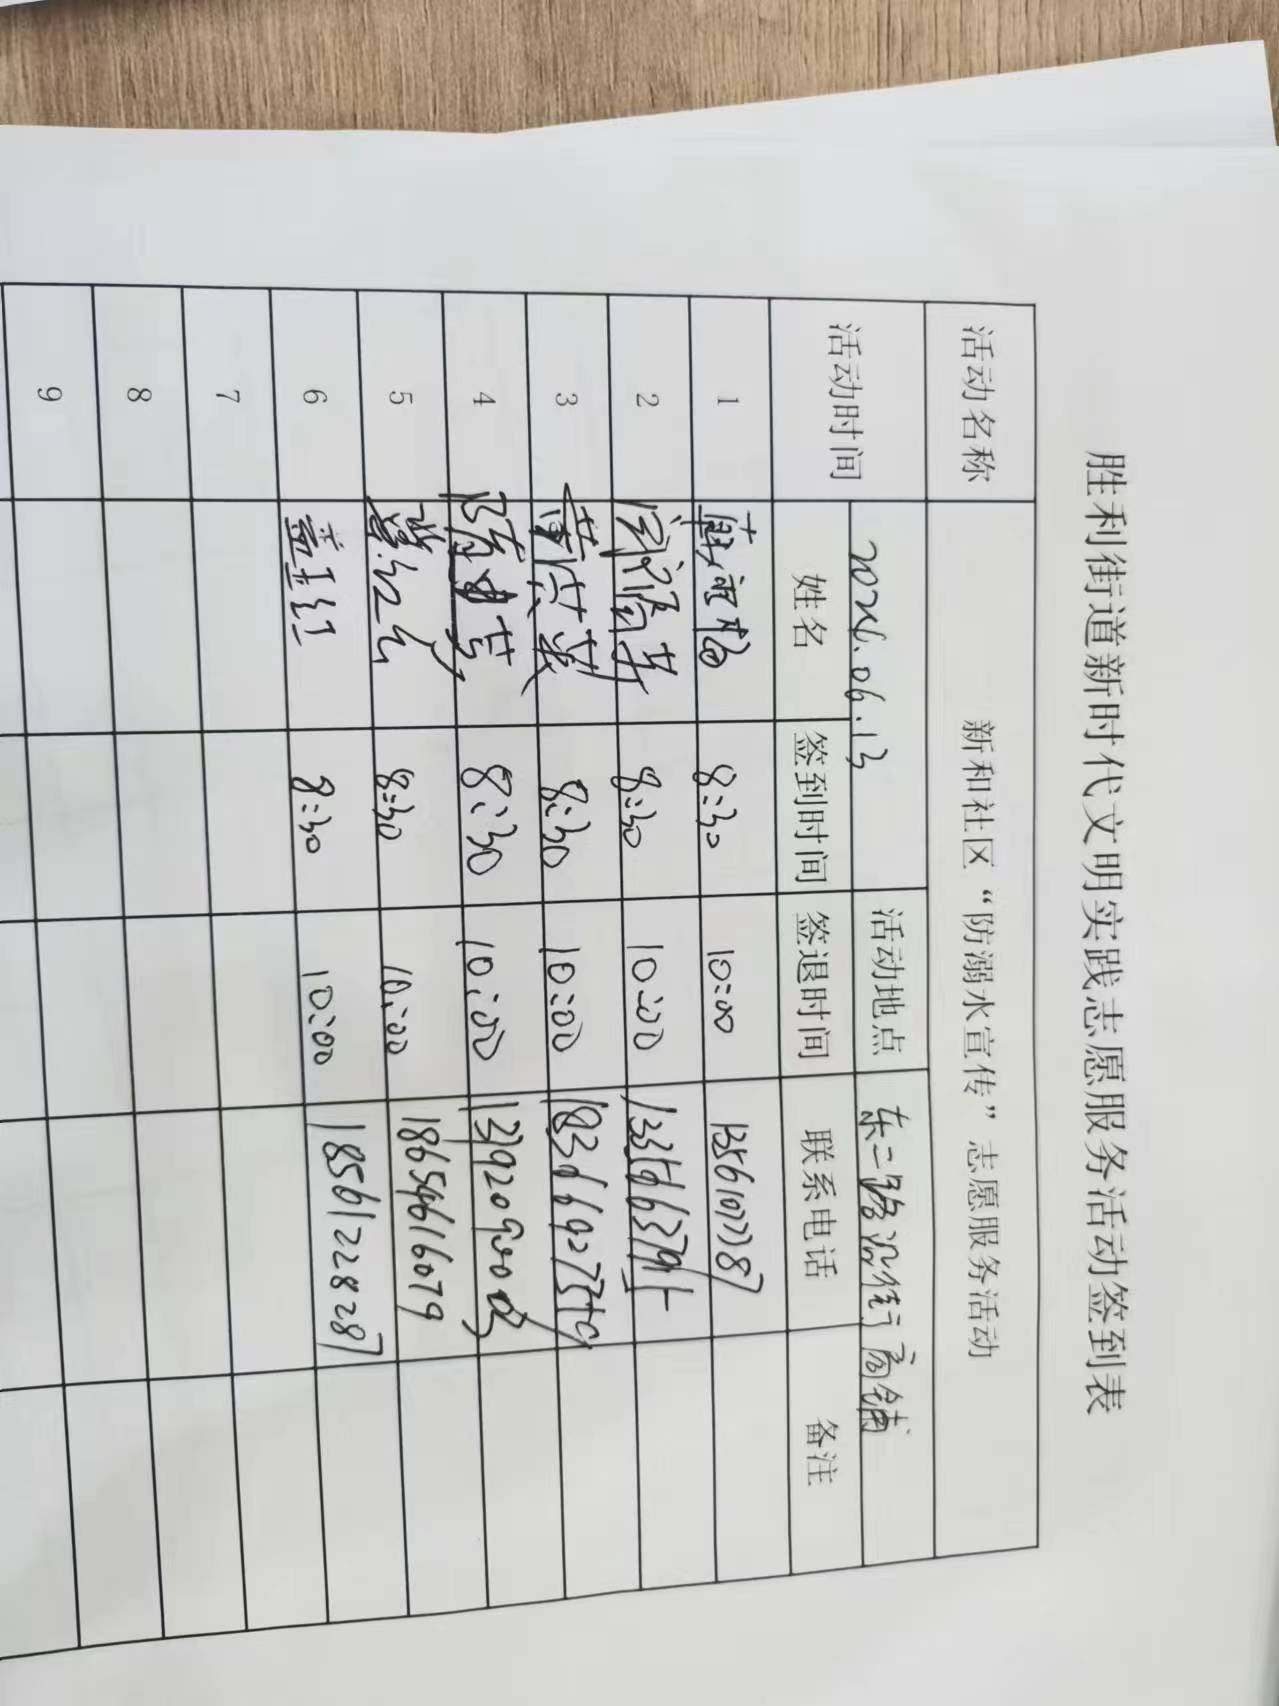 胜利街道新时代文明实践志愿服务活动签到表
活动名称 新和社区“防溺水宣传”志愿服务活动
活动时间 2026.06.13 活动地点 东二路沿街商铺
姓名 签到时间 签退时间 联系电话 备注
1 8:30 10:00
2 8:30 10:00
3 黄洪英 8:30 10:00
4 8:30 10:00
5 8:30 10:00 18654616079
6 盖玉红 8:30 10:00 185612228287
7
8
9